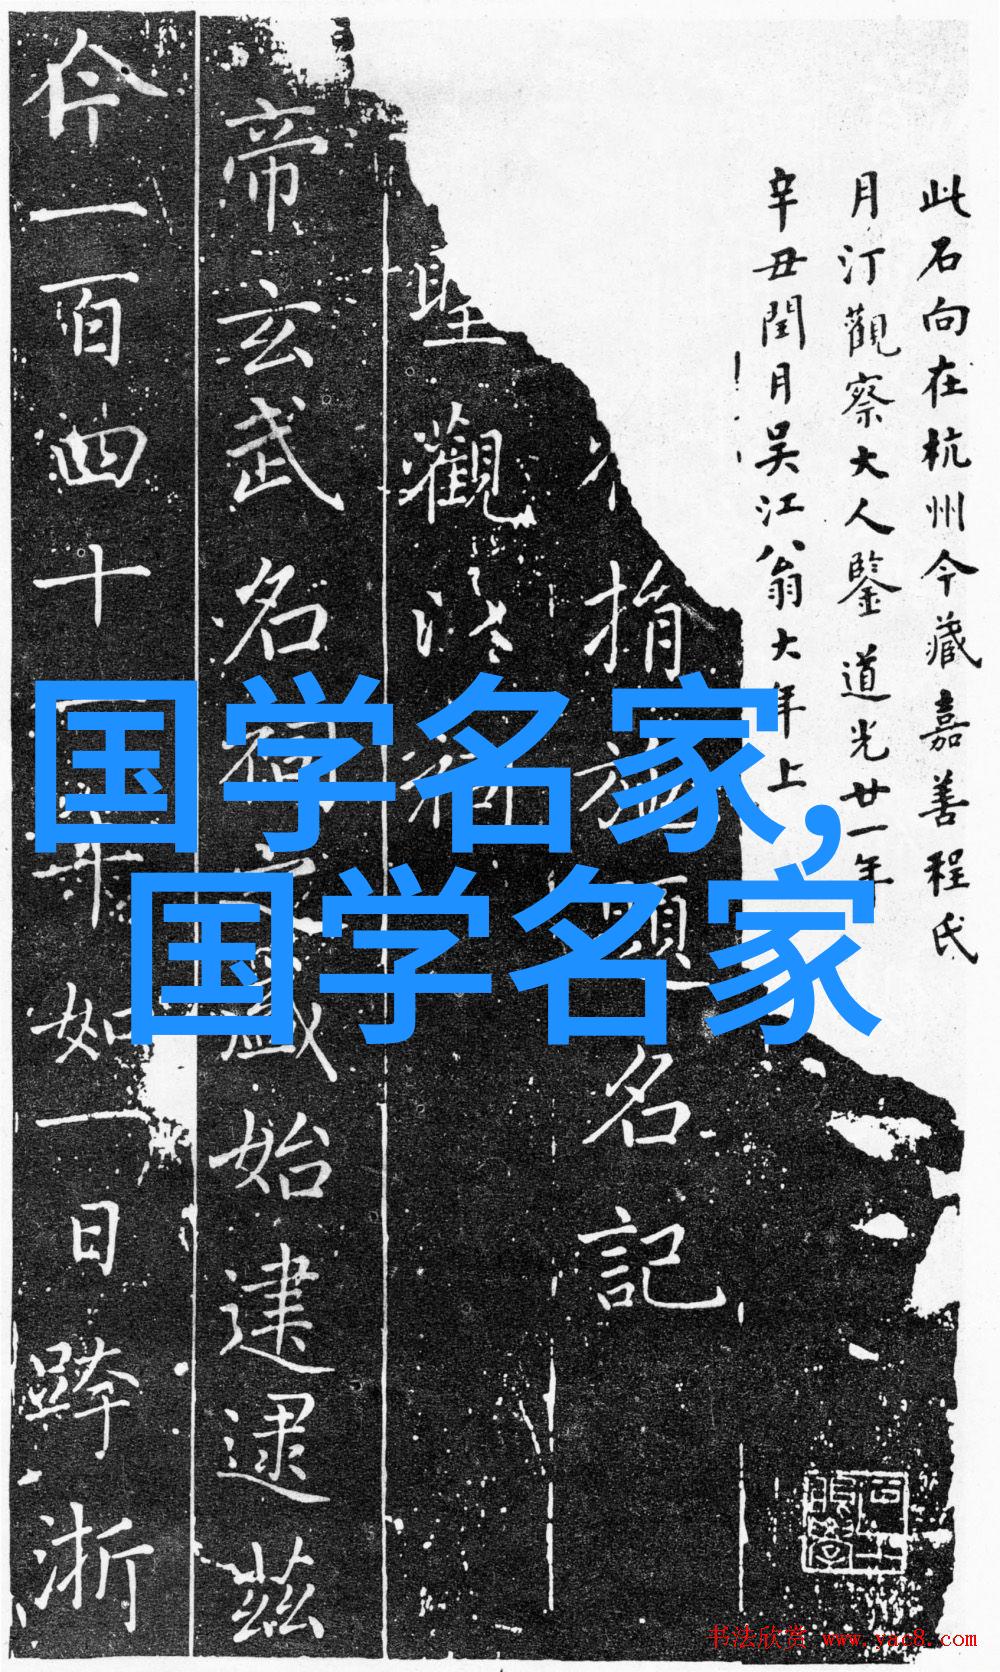 此石向在杭州今藏嘉善程氏
月汀觀察大人鑒道光廿一年
辛丑閏月吴江翁大年上
捐施題名記
聖觀修祠
帝玄武名祠之盛始建逮茲
仐一百四十一年如一日踭浙
国学名家,
国学名家
书法欣赏 www.yac8.com